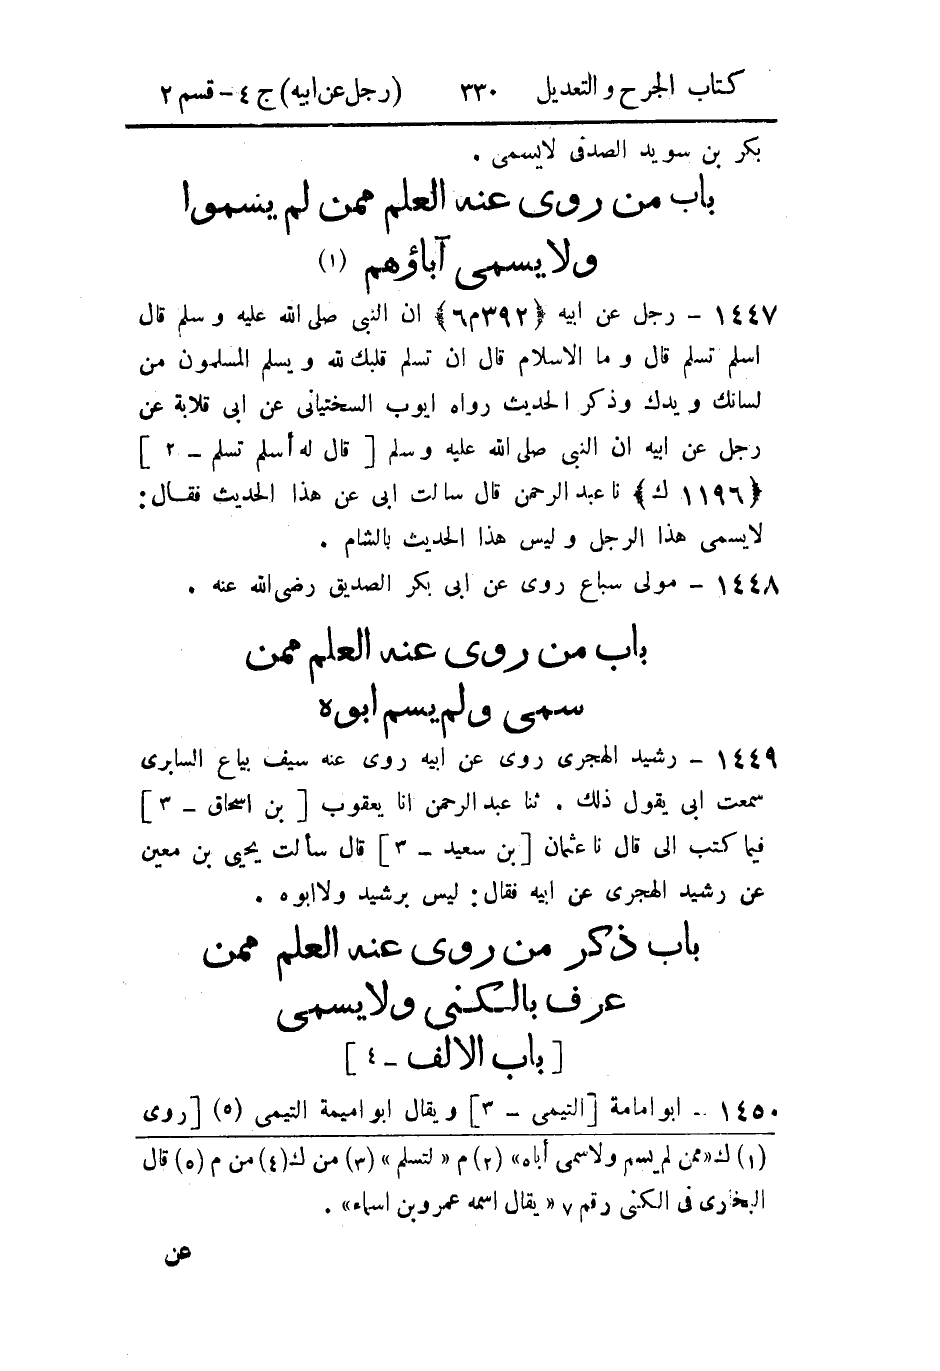 كتاب الجرح والتعديل ٣٣٠ (رجل عن ابيه) ج ٤ – قسم ٢
بكر بن سويد الصدفى لايسمى .
باب من روى عنه العلم ممن لم ينسموا
ولا يسمى آباؤهم (١)
١٤٤٧ – رجل عن ابيه ﴿٣٩٢م٦﴾ ان النبى صلى الله عليه وسلم قال
اسلم تسلم قال و ما الاسلام قال ان تسلم قلبك لله و يسلم المسلمون من
لسانك و يدك وذكر الحديث رواه ايوب السختيانى عن ابى قلابة عن
رجل عن ابيه ان النبى صلى الله عليه وسلم [ قال له أسلم تسلم – ٢ ]
﴿١١٩٦ ك﴾ نا عبد الرحمن قال سالت ابى عن هذا الحديث فقال:
لايسمى هذا الرجل و ليس هذا الحديث بالشام .
١٤٤٨ – مولى سباع روى عن ابى بكر الصديق رضى الله عنه .
باب من روى عنه العلم ممن
سمى ولم يسم ابوه
١٤٤٩ – رشيد الهجرى روى عن ابيه روى عنه سيف بياع السابرى
سمعت ابى يقول ذلك . ثنا عبد الرحمن انا يعقوب [ بن اسحاق – ٣ ]
فيما كتب الى قال نا عثمان [بن سعيد – ٣] قال سألت يحيى بن معين
عن رشيد الهجرى عن ابيه فقال: ليس برشيد ولا ابوه .
باب ذكر من روى عنه العلم ممن
عرف بالكنى ولا يسمى
[ باب الالف – ٤ ]
١٤٥٠ – ابو امامة [التيمى – ٣] ويقال ابو اميمة التيمى (٥) [روى
(١) ك «ممن لم يسم ولا سمى أباه» (٢) م « لتسلم » (٣) من ك (٤) من م (٥) قال
البخارى فى الكنى رقم ٧ « يقال اسمه عمرو بن اسماء» .
عن